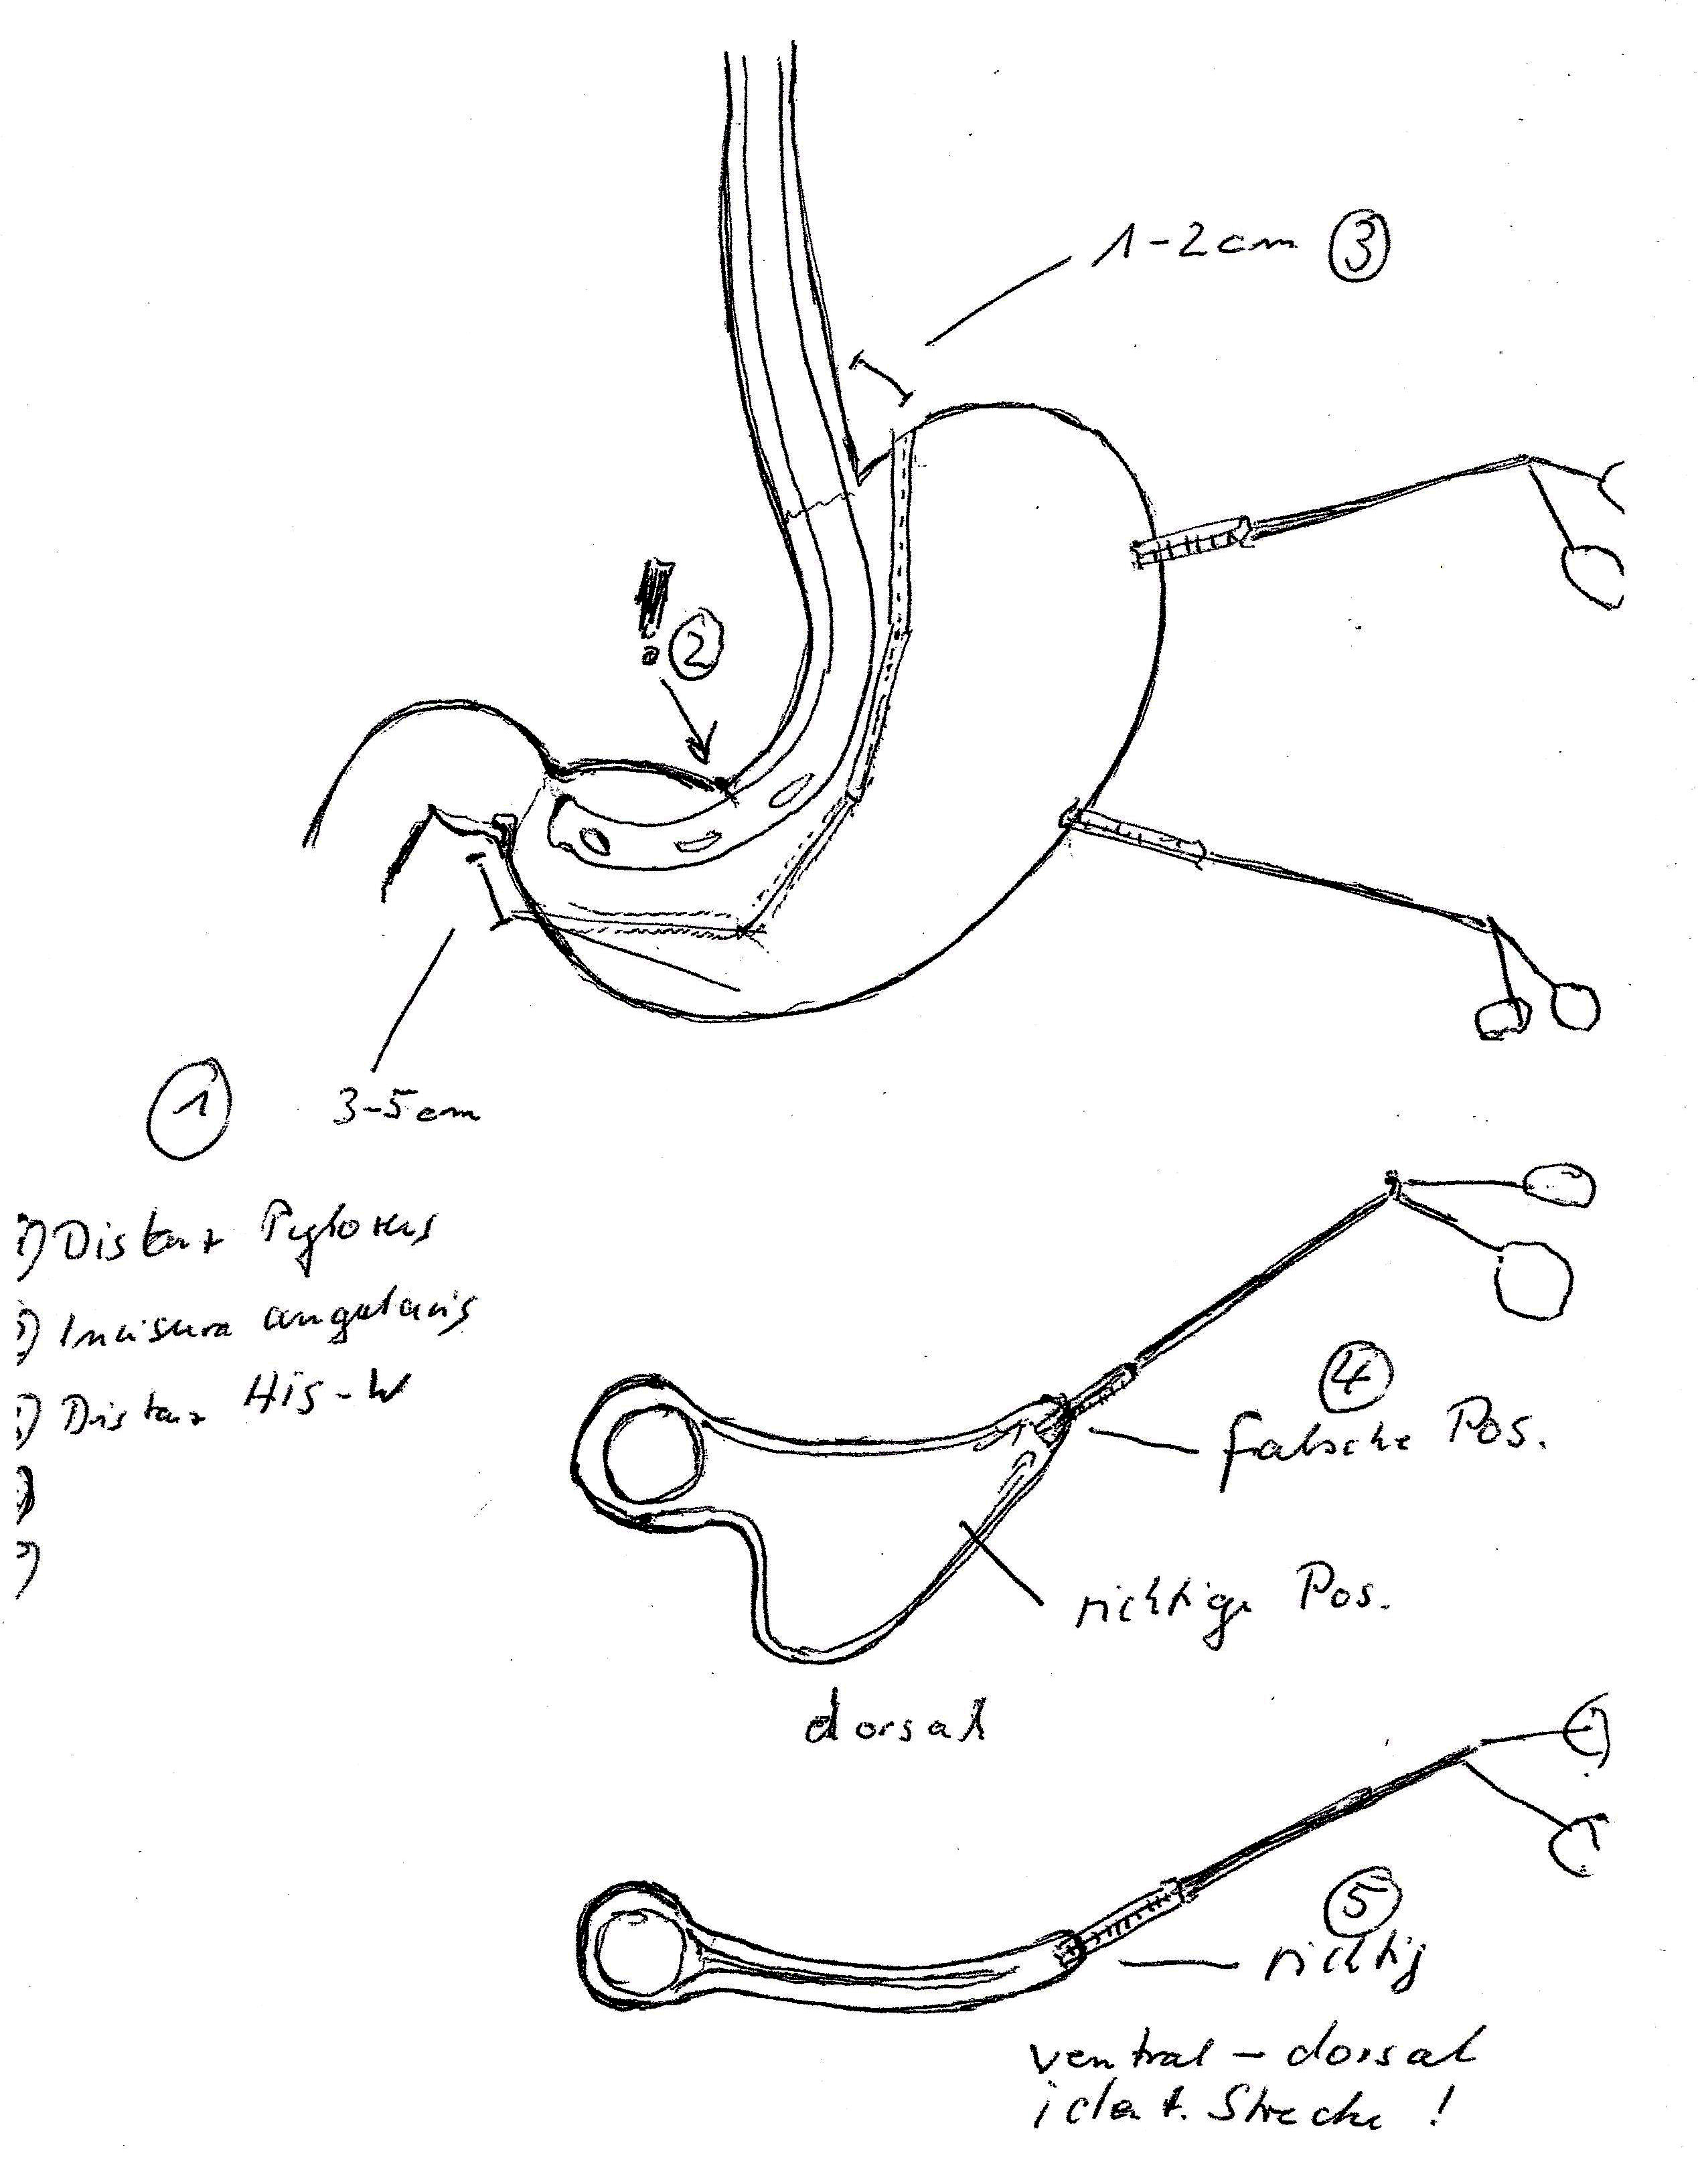 1-2 cm ③
! ②
① 3-5 cm
1) Distanz Pylorus
) Incisura angularis
) Distanz His-W
)
)
④
falsche Pos.
richtige Pos.
dorsal
⑤
richtig
ventral – dorsal
ident. Strecke !